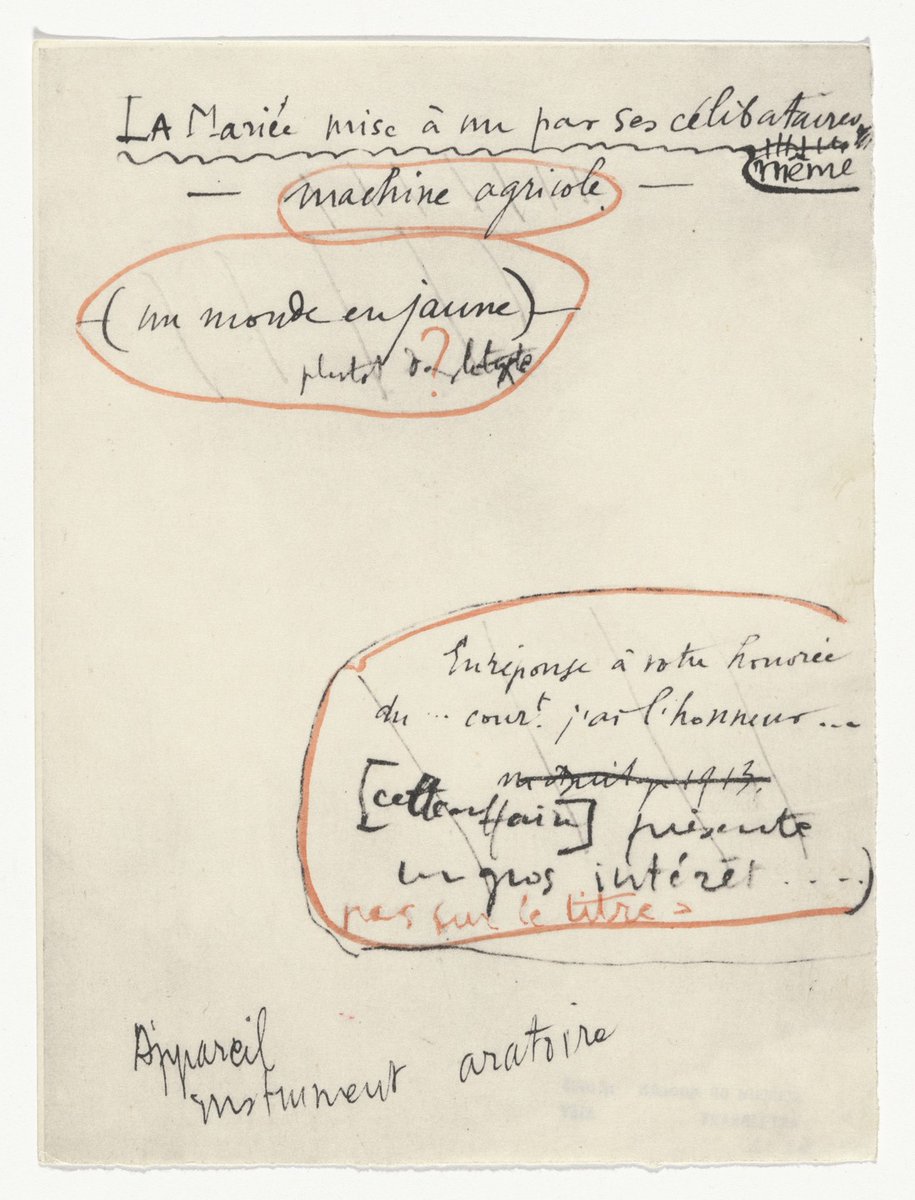 LA Mariée mise à nu par ses célibataires
même
— machine agricole. —
(un monde en jaune)
?
plutôt dans le texte
En réponse à votre honorée
du ... court. j'ai l'honneur ...
1913.
[cette affaire] présente
un gros intérêt ....)
pas sur le titre
Appareil
instrument aratoire